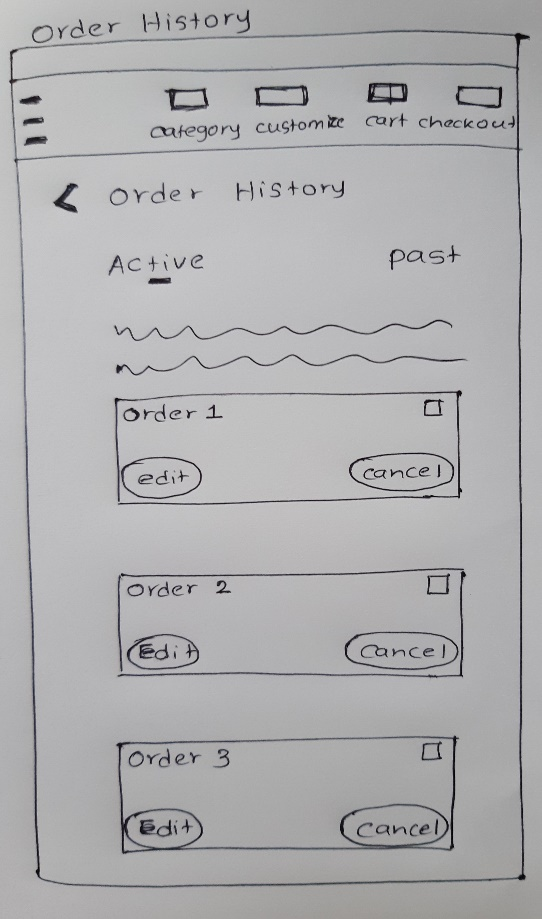 Order History
category customize cart checkout
< Order History
Active past
Order 1
edit cancel
Order 2
Edit cancel
Order 3
Edit cancel